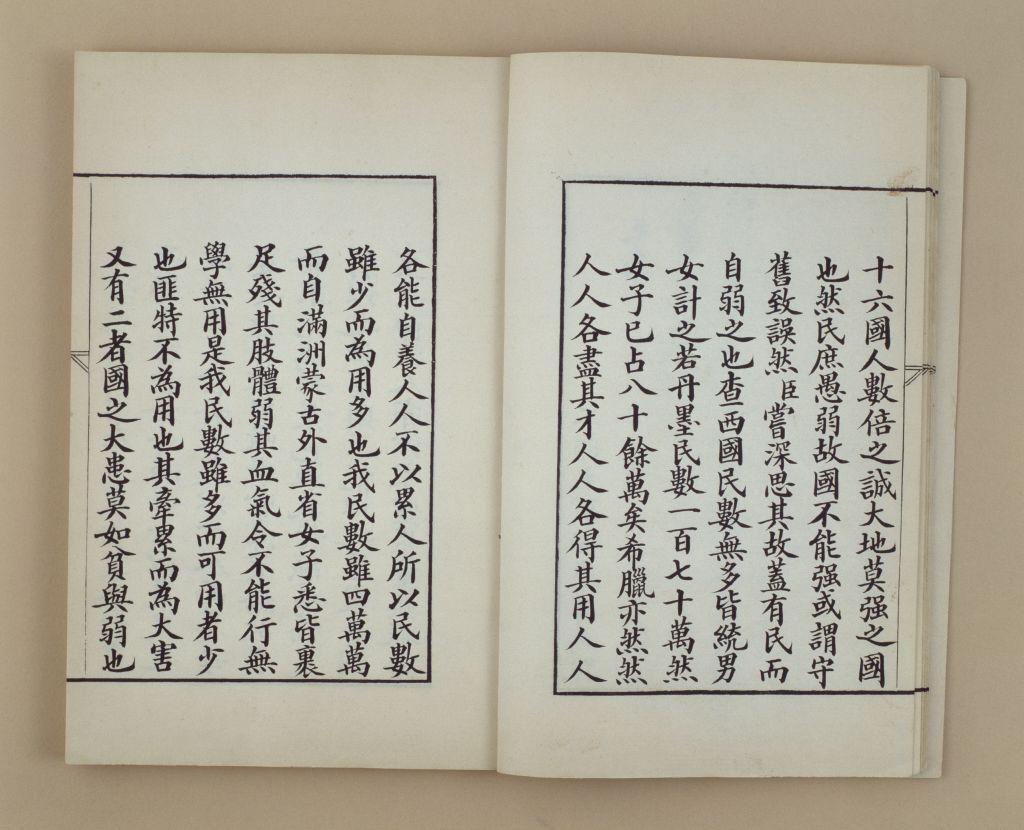 十六國人數倍之誠大地莫强之國
也然民庶愚弱故國不能强或謂守
舊致誤然臣嘗深思其故蓋有民而
自弱之也查西國民數無多皆統男
女計之若丹墨民數一百七十萬然
女子已占八十餘萬矣希臘亦然然
人人各盡其才人人各得其用人人
各能自養人人不以累人所以民數
雖少而為用多也我民數雖四萬萬
而自滿洲蒙古外直省女子悉皆裹
足殘其肢體弱其血氣令不能行無
學無用是我民數雖多而可用者少
也匪特不為用也其牽累而為大害
又有二者國之大患莫如貧與弱也